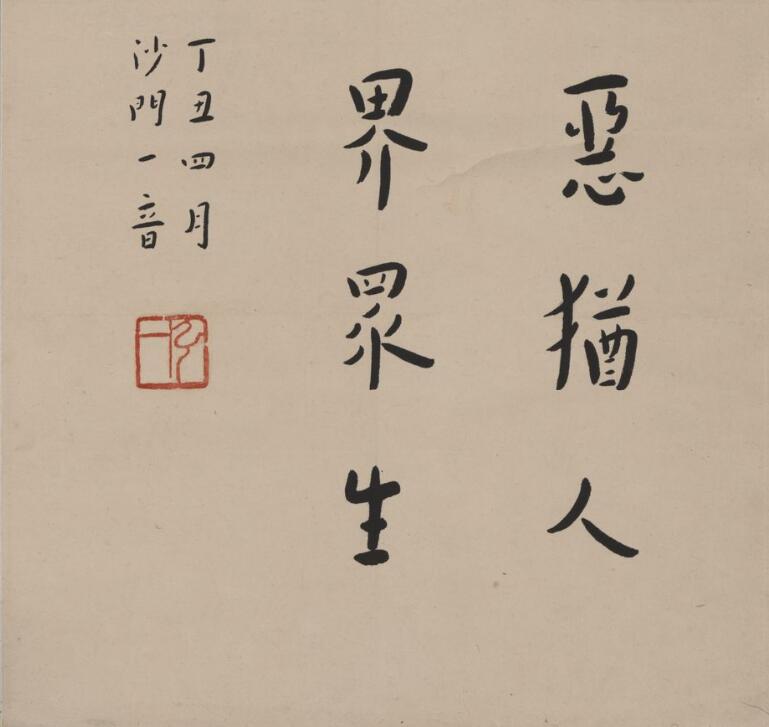 惡猶人
界眾生
丁丑四月
沙門一音
弘一